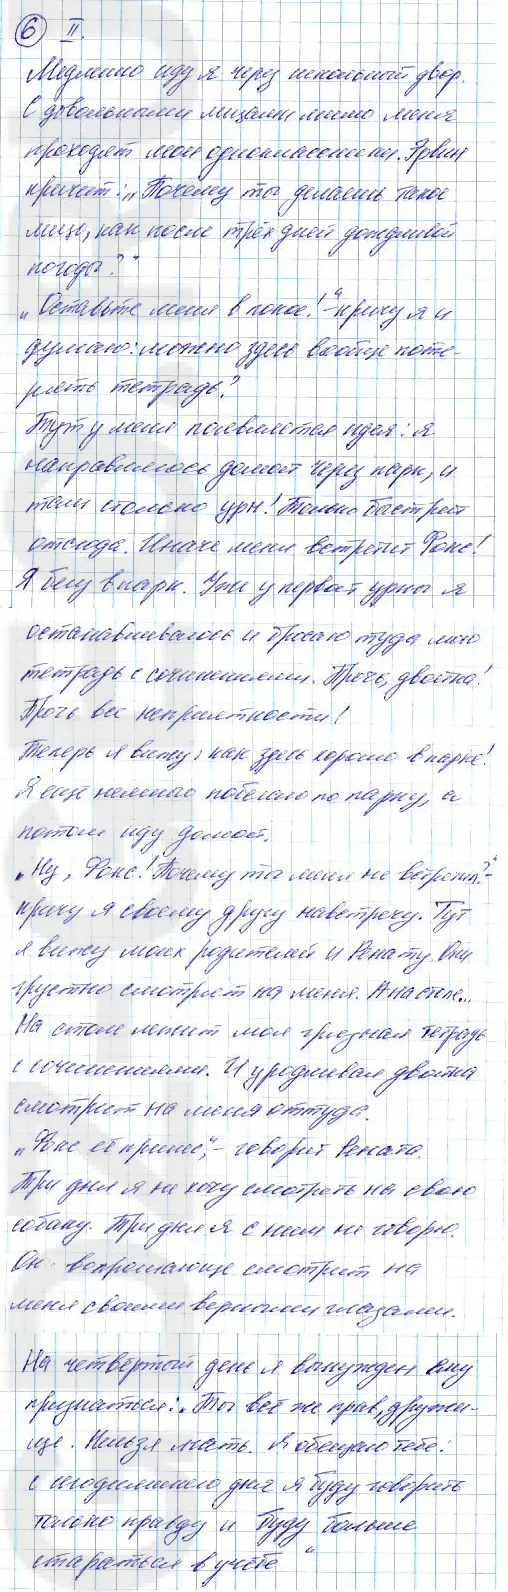 6 II.
Медленно иду я через школьный двор.
С довольными лицами мимо меня
проходят мои одноклассники. Эрвин
кричит: „Почему ты делаешь такое
лицо, как после трёх дней дождливой
погоды?"
„Оставьте меня в покое!" - кричу я и
думаю: можно здесь вообще поте-
рять тетрадь?
Тут у меня появляется идея: я
направляюсь домой через парк, и
там столько урн! Только быстрей
отсюда. Иначе меня встретит Факс!
Я бегу в парк. Уже у первой урны я
останавливаюсь и бросаю туда мою
тетрадь с сочинениями. Прочь, двойка!
Прочь все неприятности!
Теперь я вижу, как здесь хорошо в парке!
Я еще немного побегаю по парку, а
потом иду домой.
„Ну, Факс! Почему ты меня не встретил?" -
кричу я своему другу навстречу. Тут
я вижу моих родителей и Ренату. Они
грустно смотрят на меня. А на столе...
На столе лежит моя грязная тетрадь
с сочинениями. И уродливая двойка
смотрит на меня оттуда.
„Факс её принес", - говорит Рената.
Три дня я не хочу смотреть на свою
собаку. Три дня я с ним не говорю.
Он вопрошающе смотрит на
меня своими верными глазами.
На четвертый день я вынужден ему
признаться: „Ты всё же прав, дружи-
ще. Нельзя лгать. Я обещаю тебе:
с сегодняшнего дня я буду говорить
только правду и буду больше
стараться в учёбе"